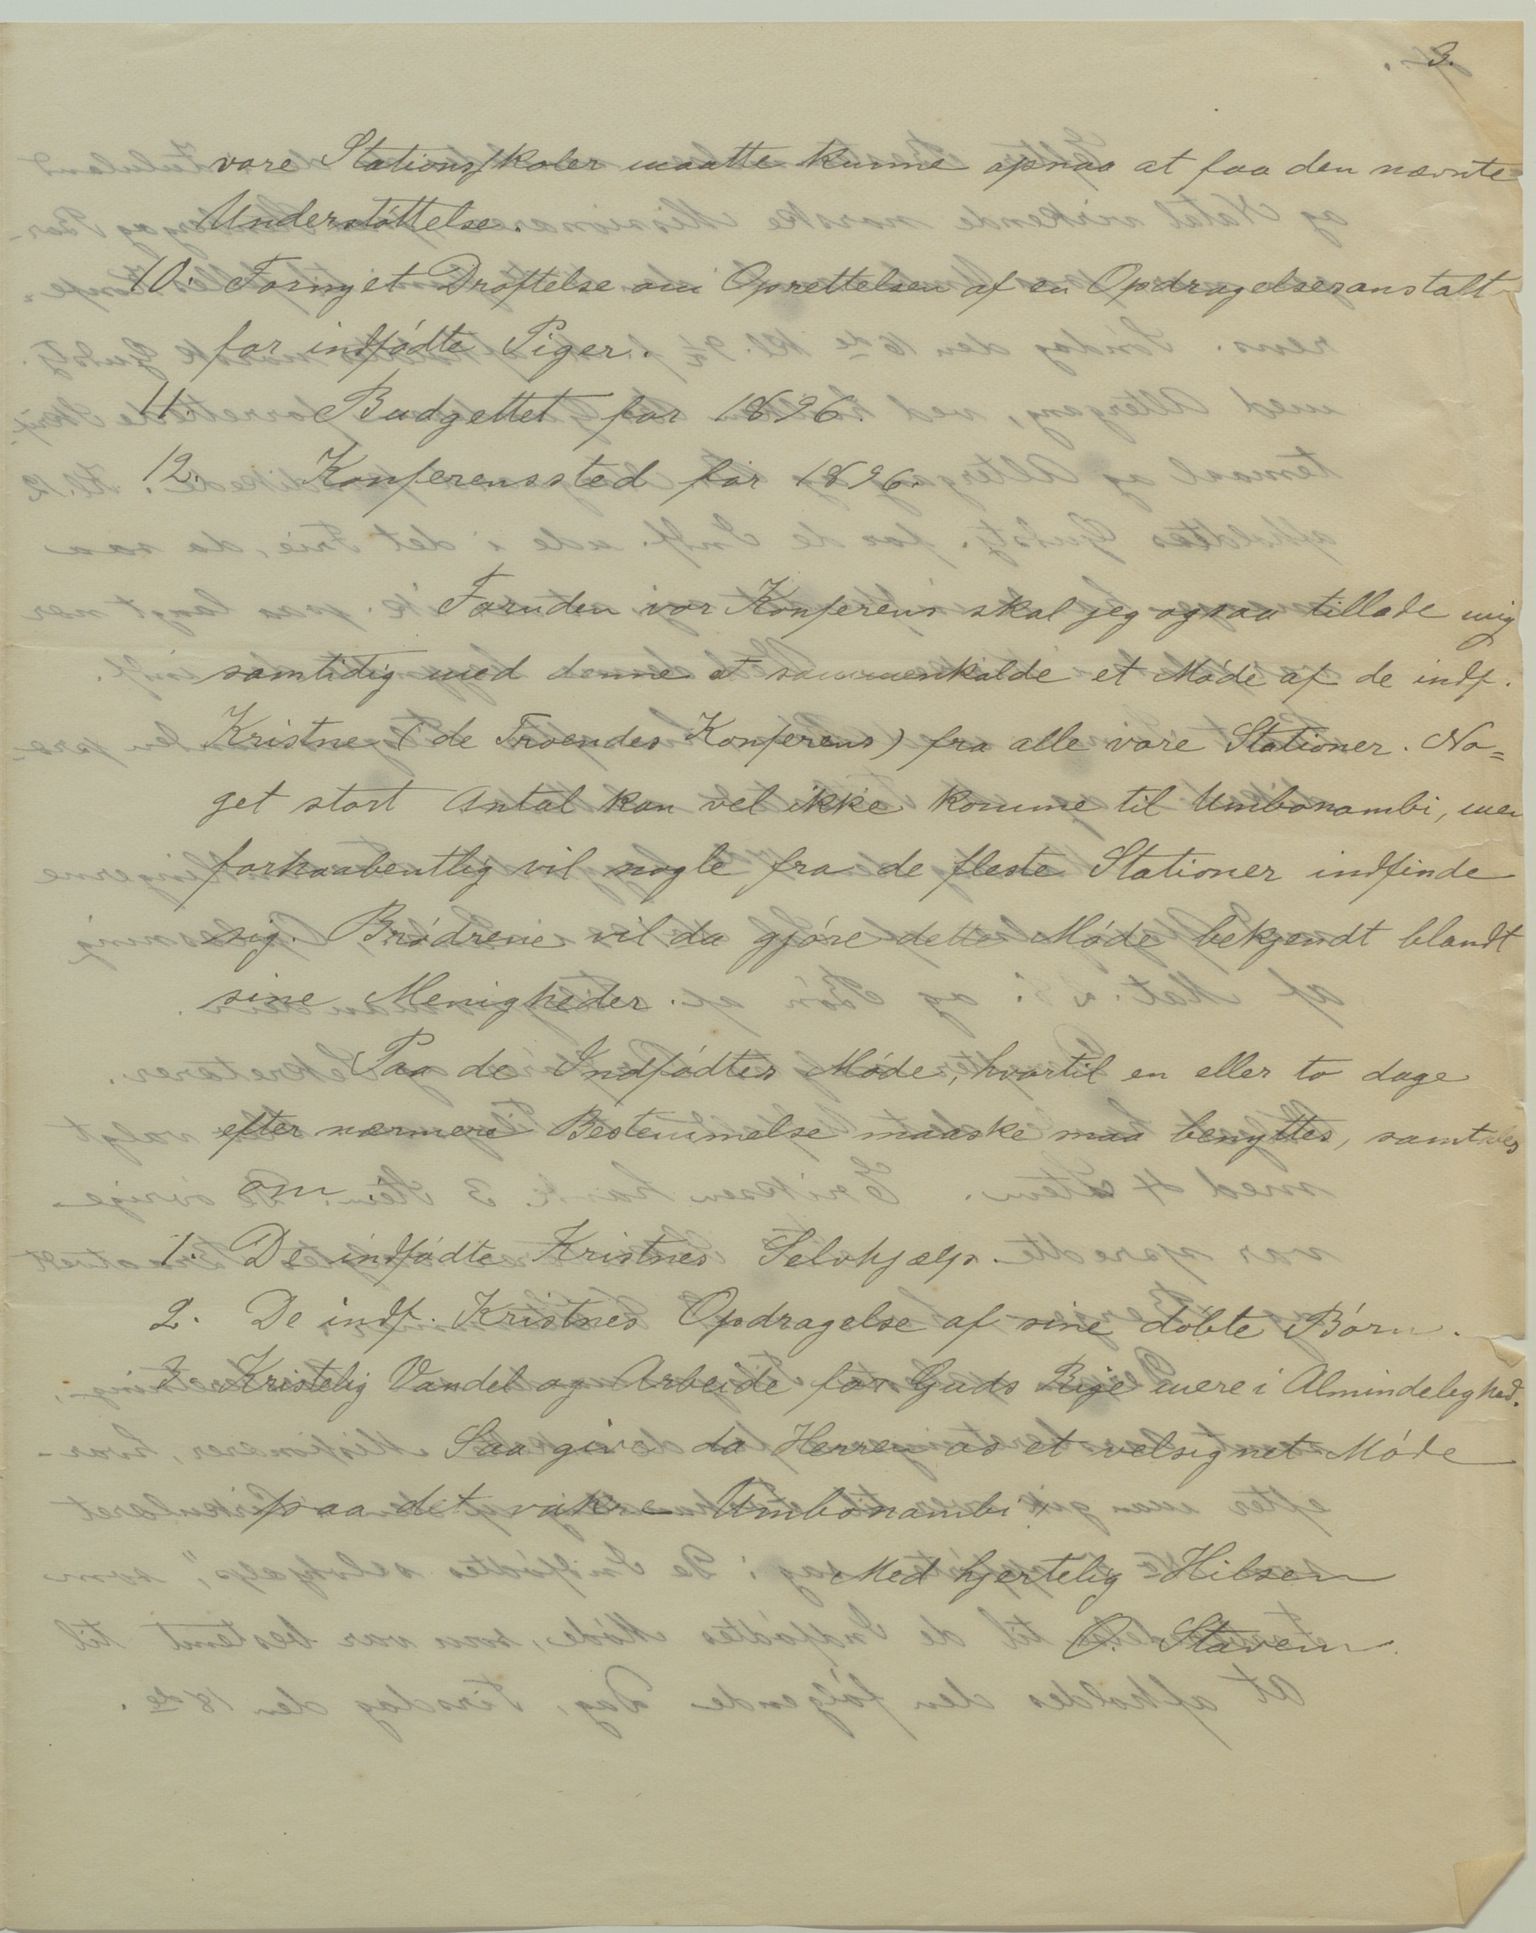 3.
vore Stationsskoler maatte kunne opnaa at faa den nævnte
Understøttelse.
10. Fornyet Drøftelse om Oprettelsen af en Opdragelsesanstalt
for indfødte Piger.
11. Budgettet for 1896.
12. Konferenssted for 1896.
Foruden vor Konferens skal jeg ogsaa tillade mig
samtidig med denne at sammenkalde et Møde af de indf.
Kristne (de Troendes Konferens) fra alle vore Stationer. No=
get stort Antal kan vel ikke komme til Umbonambi, men
forhaabentlig vil nogle fra de fleste Stationer indfinde
sig. Brødrene vil da gjøre dette Møde bekjendt blandt
sine Menigheder.
Paa de Indfødtes Møde, hvortil en eller to dage
efter nærmere Bestemmelse maaske maa benyttes, samtales
om
1. De indfødte Kristnes Selvhjælp.
2. De indf. Kristnes Opdragelse af sine døbte Børn.
3. Kristelig Vandel og Arbeide for Guds Rige mere i Almindelighed.
Saa give da Herren os et velsignet Møde
paa det vakre Umbonambi
Med hjertelig Hilsen
O. Stavem